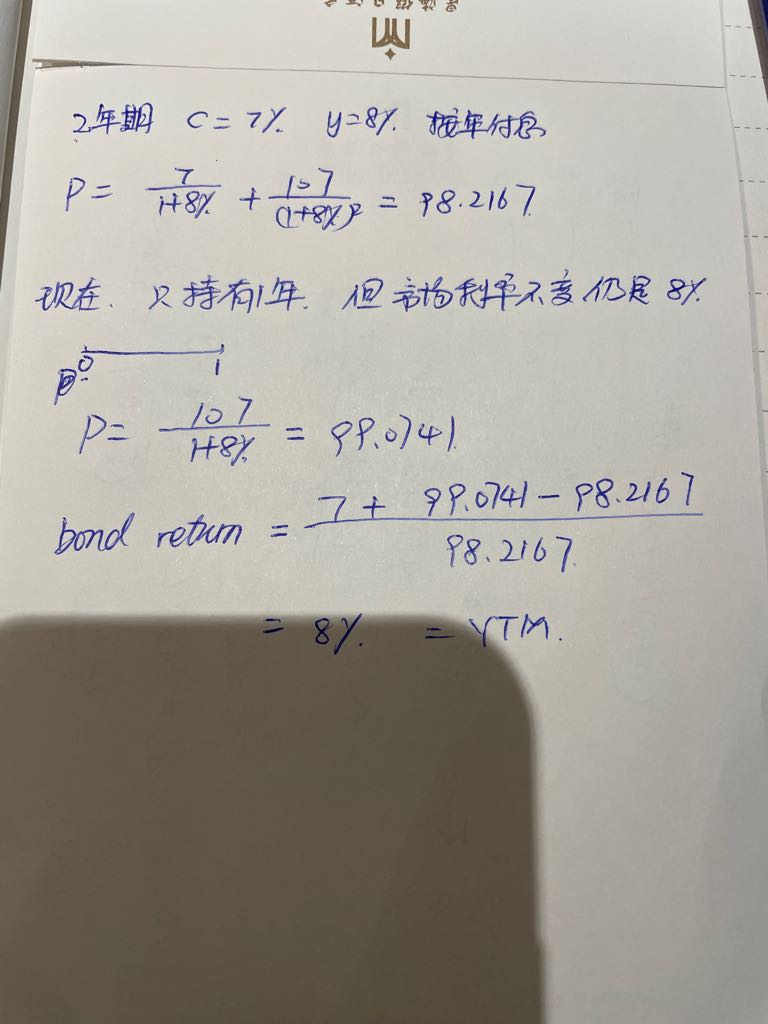 2年期 C = 7% y=8% 按年付息
P = 7/(1+8%) + 107/(1+8%)² = 98.2167
现在、只持有1年、但市场利率不变仍是 8%
0 1
P = 107/(1+8%) = 99.0741
bond return = (7 + 99.0741 - 98.2167)/98.2167
= 8% = YTM.